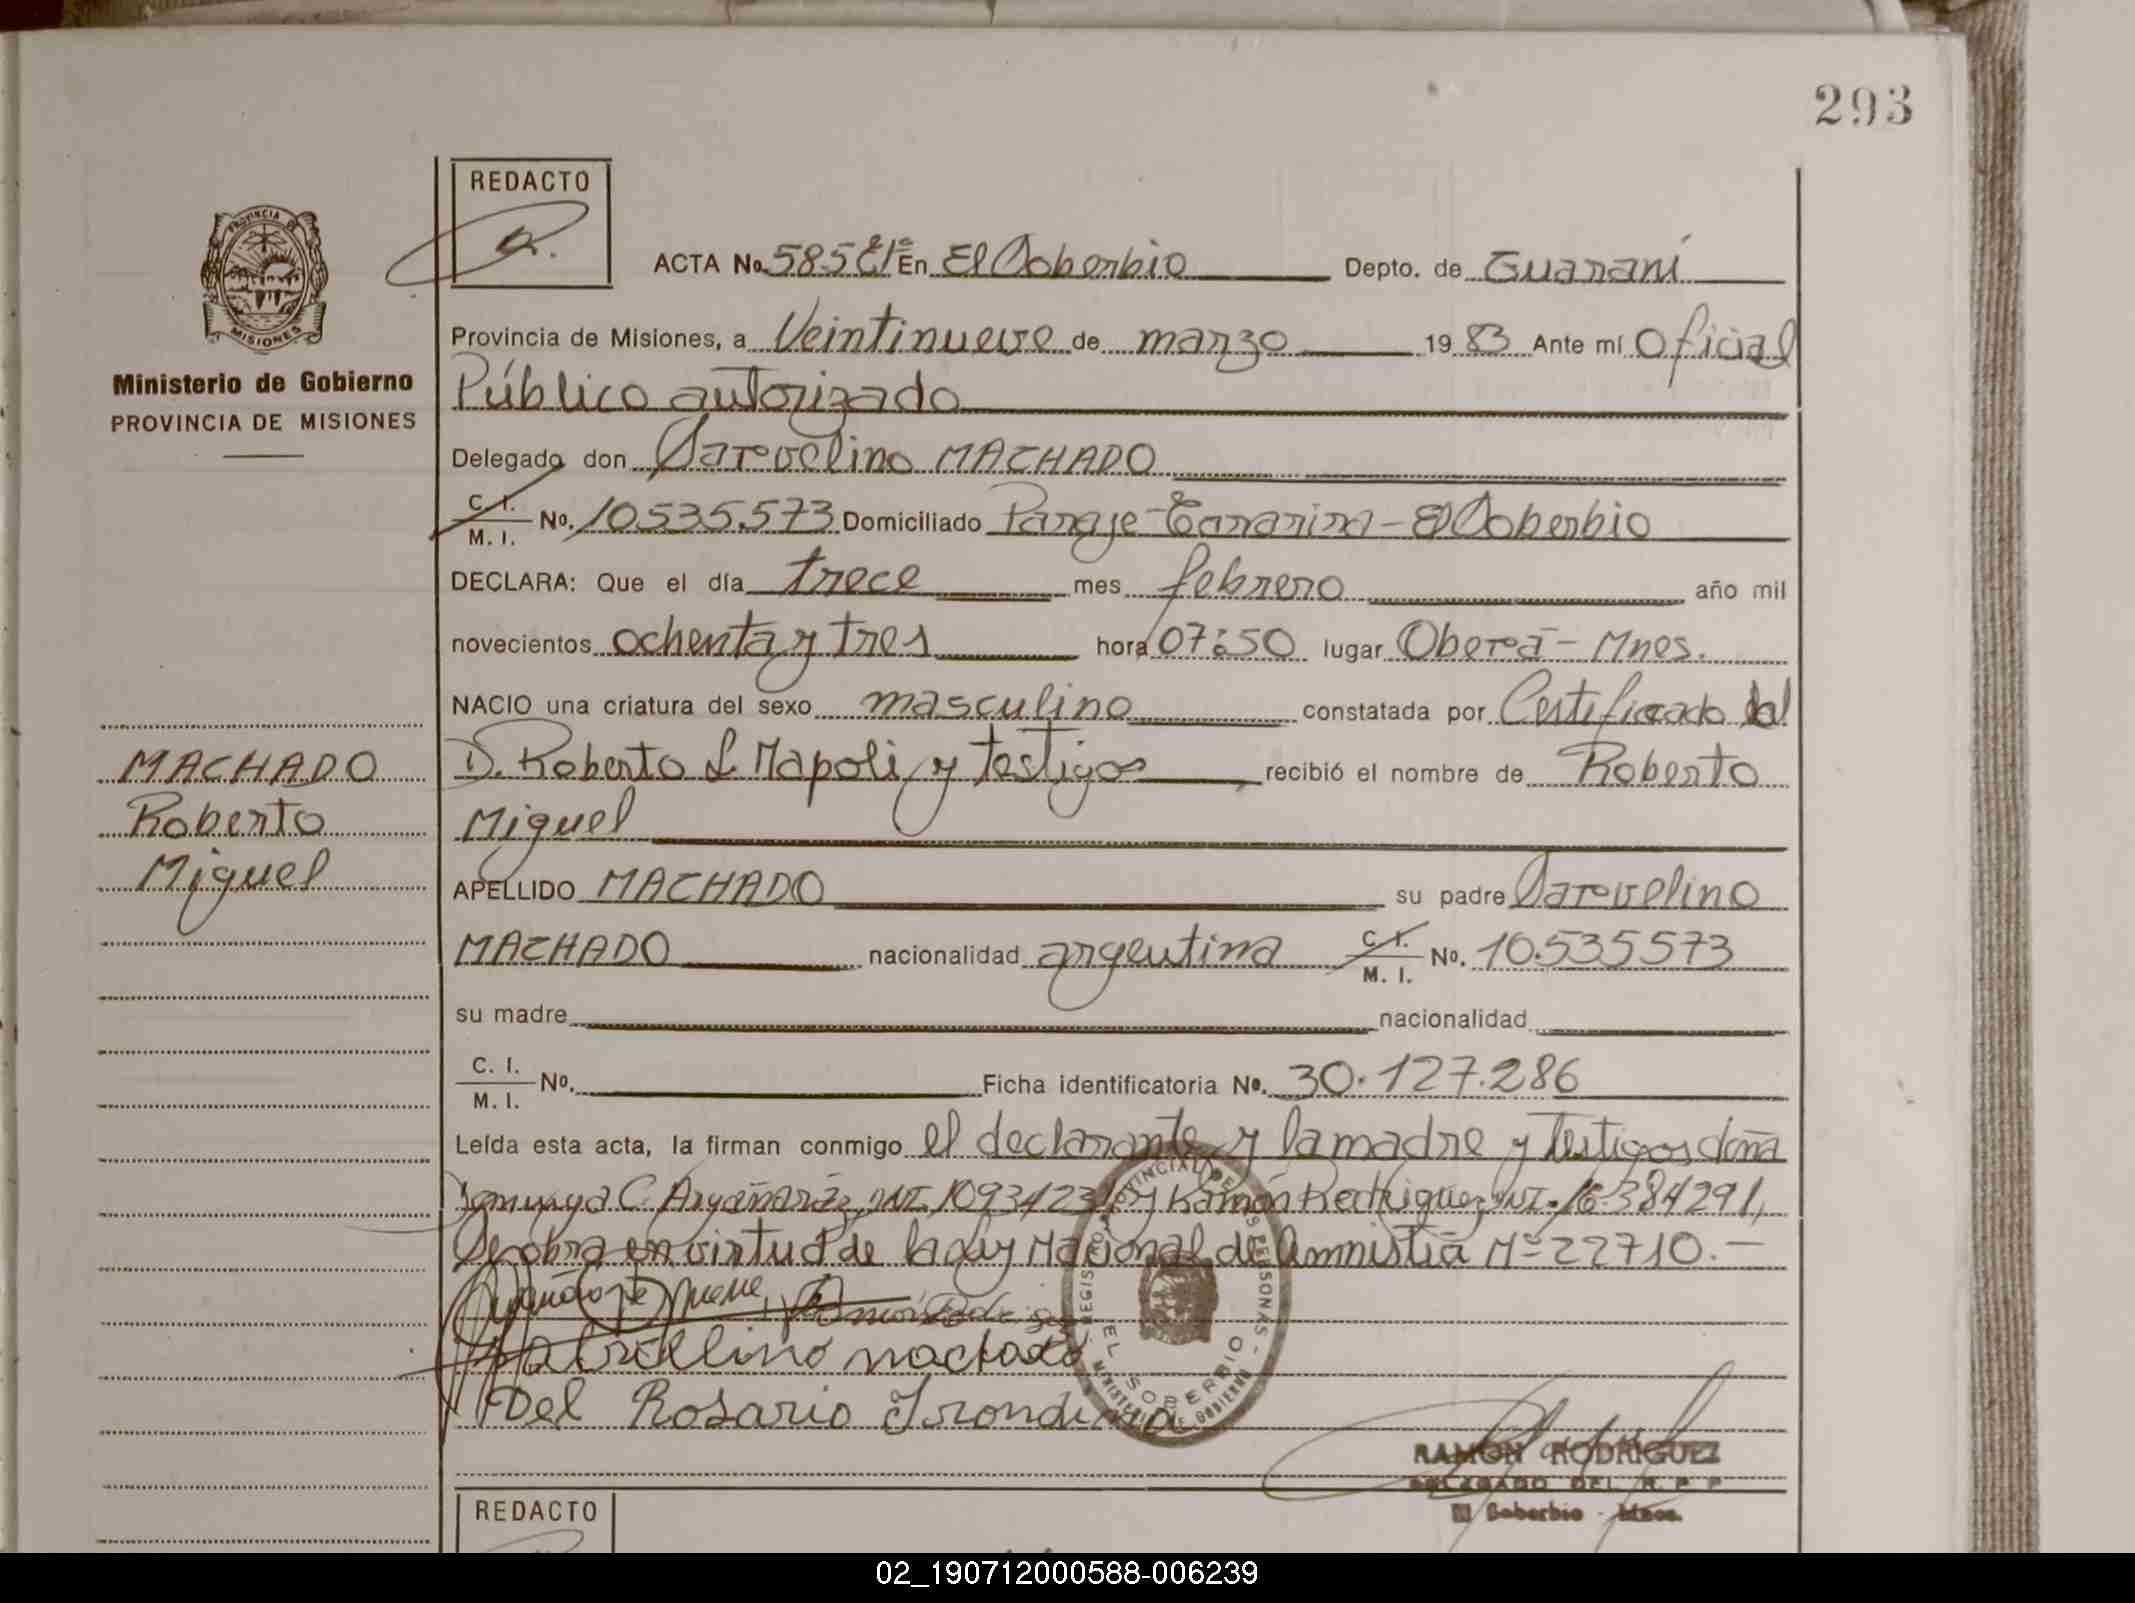 293
REDACTO
PROVINCIA DE
MISIONES
Ministerio de Gobierno
PROVINCIA DE MISIONES
ACTA No. 585 En El Soberbio Depto. de Guaraní
Provincia de Misiones, a Veintinueve de marzo 1983 Ante mí Oficial
Público autorizado
Delegado don Sarvelino MACHADO
C. I.
M. I. Nº. 10.535.573 Domiciliado Paraje - - El Soberbio
DECLARA: Que el día trece mes febrero año mil
novecientos ochenta y tres hora 07:50 lugar Oberá - Mnes.
NACIO una criatura del sexo masculino constatada por Certificado del
D. Roberto L Napoli y testigos recibió el nombre de Roberto
Miguel
APELLIDO MACHADO su padre Sarvelino
MACHADO nacionalidad argentina C. I.
M. I. Nº. 10.535573
su madre nacionalidad
C. I.
M. I. Nº. Ficha identificatoria Nº. 30.127.286
Leída esta acta, la firman conmigo el declarante y la madre y testigos doña
C. Argañaráz, y Ramón Rodriguez 16.384291,
Se obra en virtud de la Ley Nacional de Amnistía Nº 22710.-
machado
Del Rosario
MACHADO
Roberto
Miguel
EL SOBERBIO
RAMON RODRIGUEZ
DELEGADO DEL R. P. P
El Soberbio - Mnes.
REDACTO
02_190712000588-006239